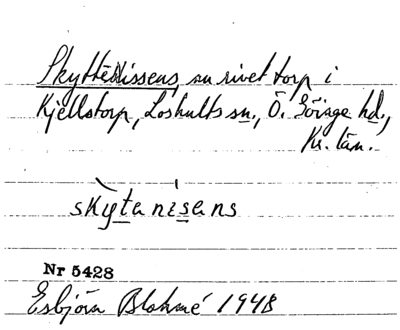 Skyttenissens, nu rivet torp i
Kjellstorp, Loshults sn., Ö. Göinge hd.,
Kr. län.
skytanisans
Nr 5428
Esbjörn Blohmé 1948